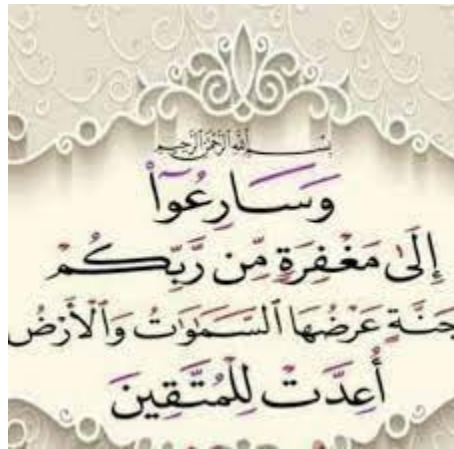 بِسْمِ اللَّهِ الرَّحْمَٰنِ الرَّحِيمِ
وَسَارِعُوٓا۟
إِلَىٰ مَغْفِرَةٍ مِّن رَّبِّكُمْ
جَنَّةٍ عَرْضُهَا ٱلسَّمَٰوَٰتُ وَٱلْأَرْضُ
أُعِدَّتْ لِلْمُتَّقِينَ